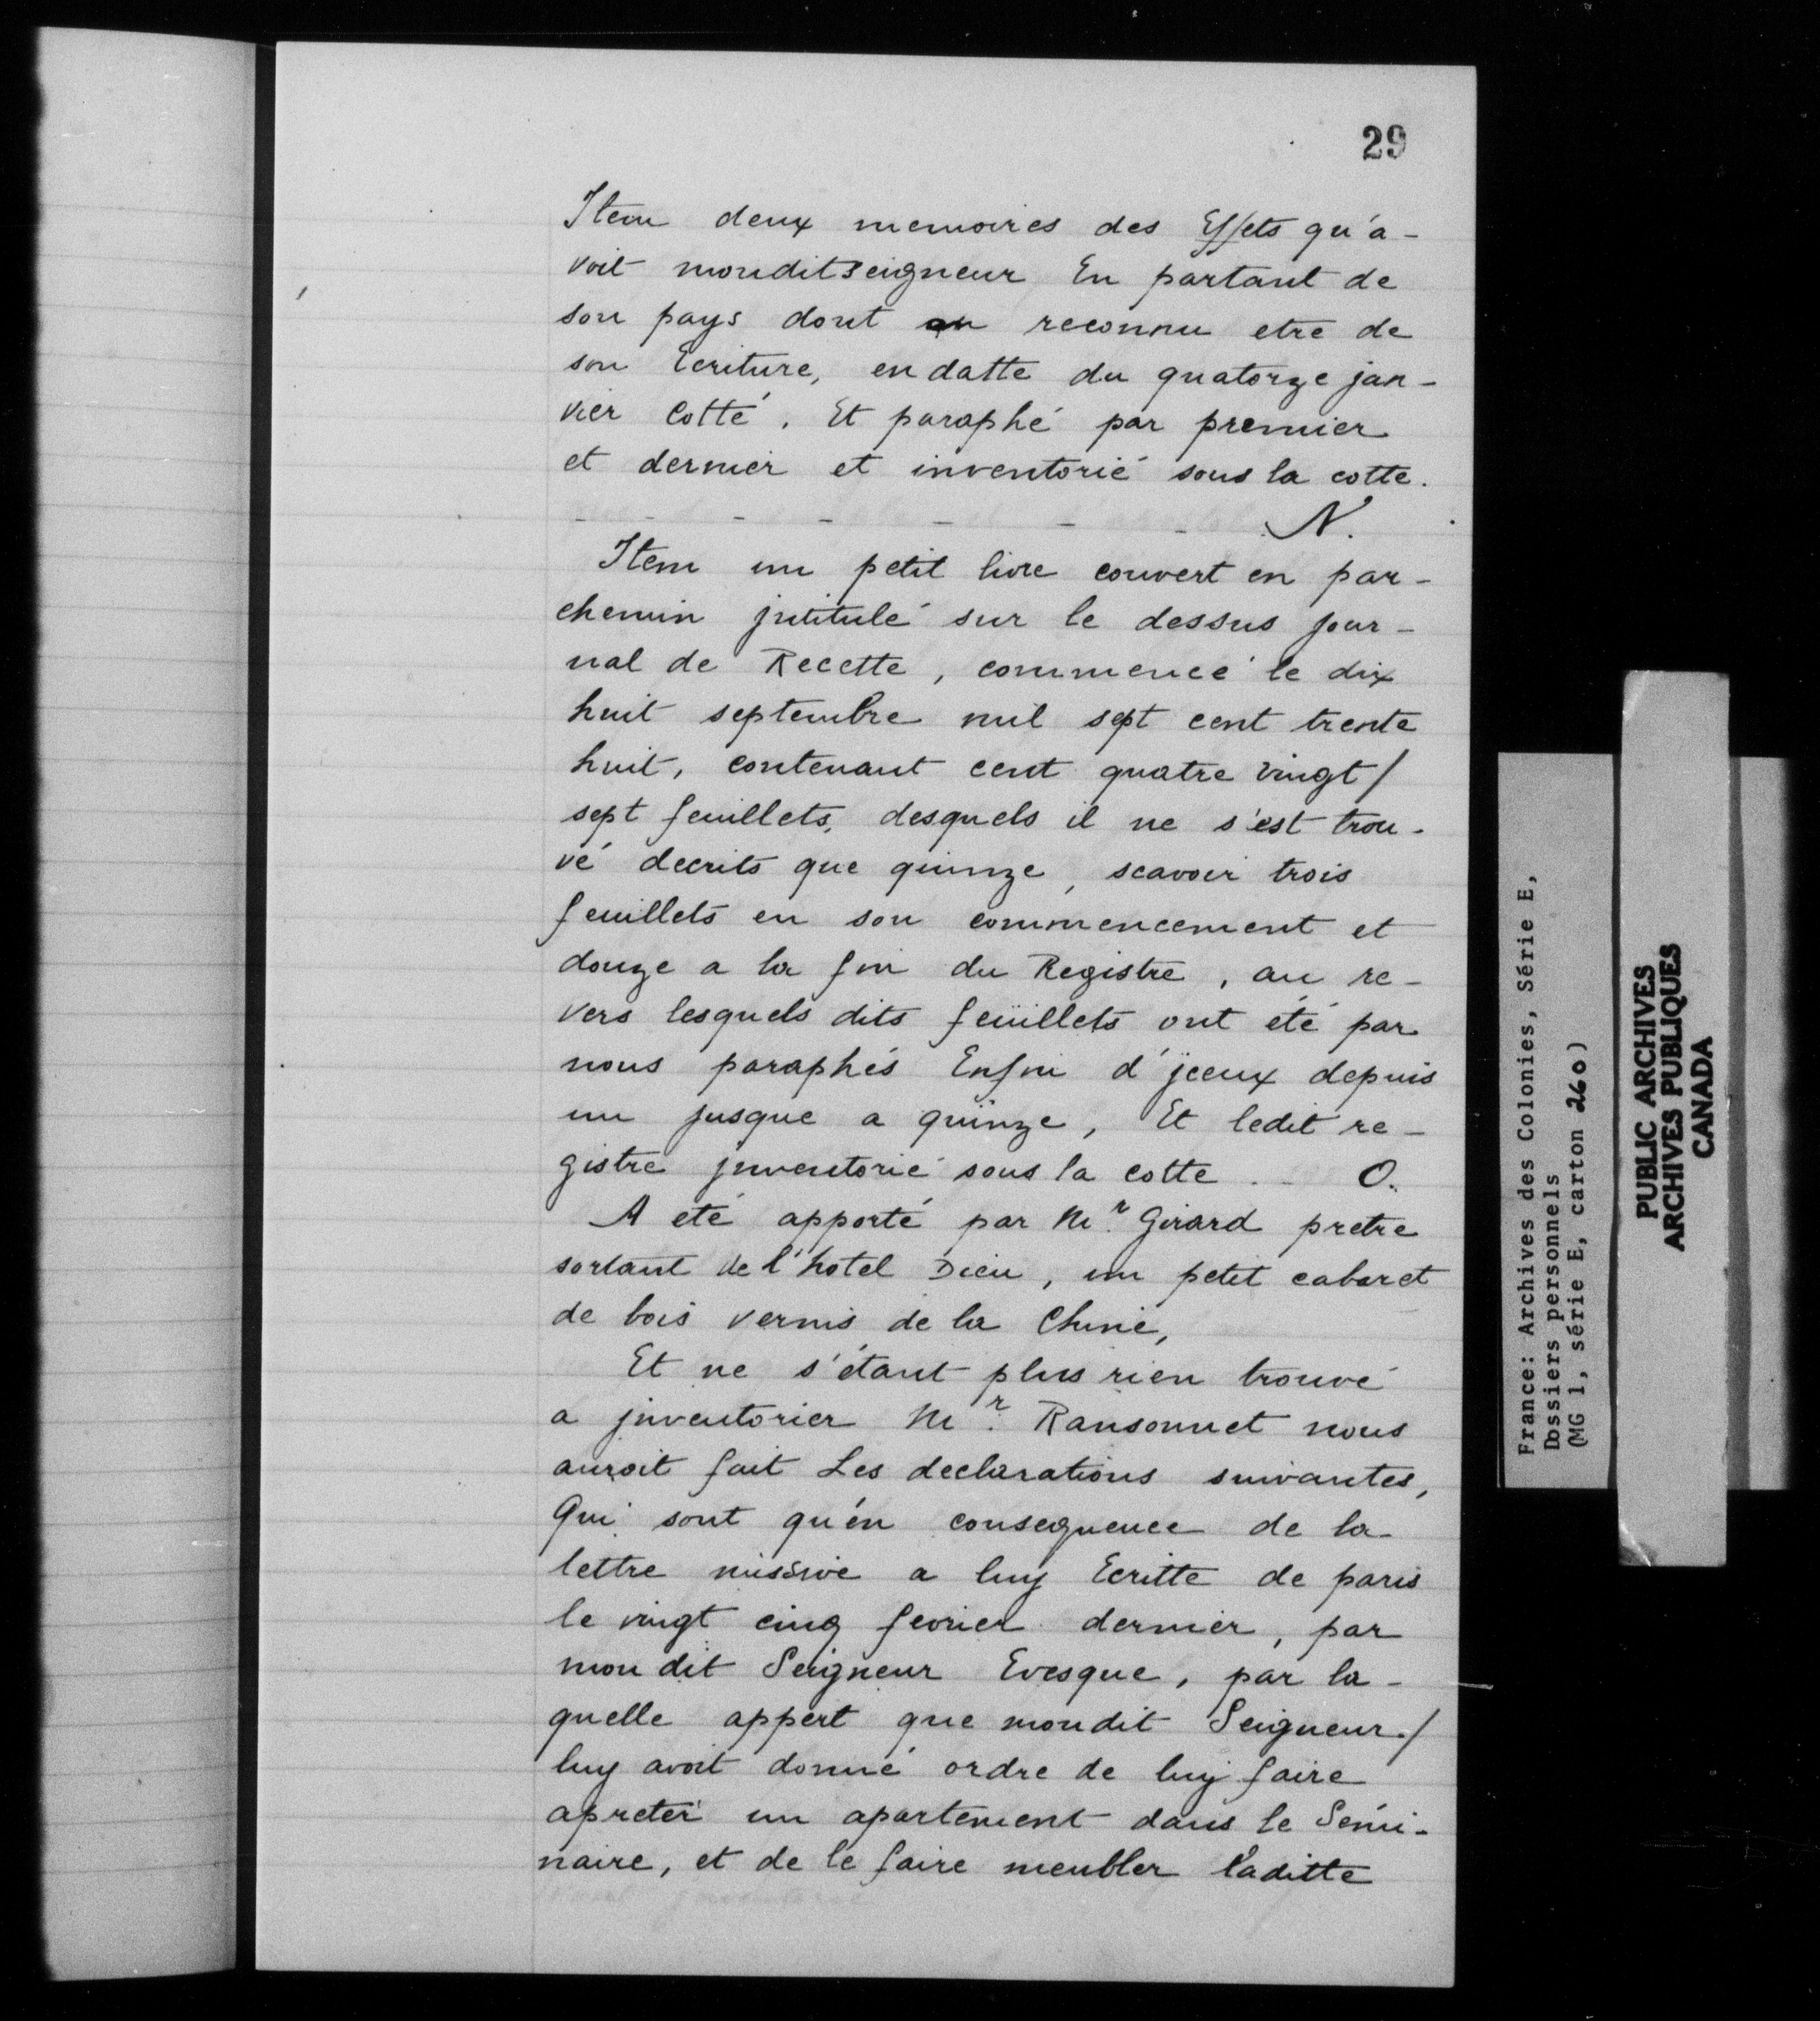 29
Item deux memoires des Effets qu'a-
voit monditseigneur En partant de
son pays dont on reconnu etre de
son Ecriture, en datte du quatorze jan-
vier Cotté. Et paraphé par premier
et dernier et inventorié sous la cotte.
- - - - - - - N.
Item un petit livre couvert en par-
chemin jntitulé sur le dessus jour-
nal de Recette, commencé le dix
huit septembre mil sept cent trente
huit, contenant cent quatre vingt/
sept feuillets, desquels il ne s'est trou-
vé decrits que quinze, scavoir trois
feuillets en son commencement et
douze a la fin du Registre, au re-
vers lesquels dits feüillets ont été par
nous paraphés Enfin d'jceux depuis
un jusque a quinze, Et ledit re-
gistre jnventorié sous la cotte . - O.
A eté apporté par Mr. Girard pretre
sortant de l'hotel Dieu, un petit cabaret
de bois vernis de la Chine,
Et ne s'étant plus rien trouvé
a jnventorier Mr. Ransonnet nous
auroit fait Les declarations suivantes,
Qui sont qu'en consequence de la
lettre missive a luy Ecritte de paris
le vingt cinq fevrier dernier, par
mon dit Seigneur Evesque, par la-
quelle appert que mondit Seigneur./
luy avoit donné ordre de luy faire
apreter un apartement dans le Sémi-
naire, et de le faire meubler laditte
France: Archives des Colonies, Série E,
Dossiers personnels
(MG 1, série E, carton 260)
PUBLIC ARCHIVES
ARCHIVES PUBLIQUES
CANADA